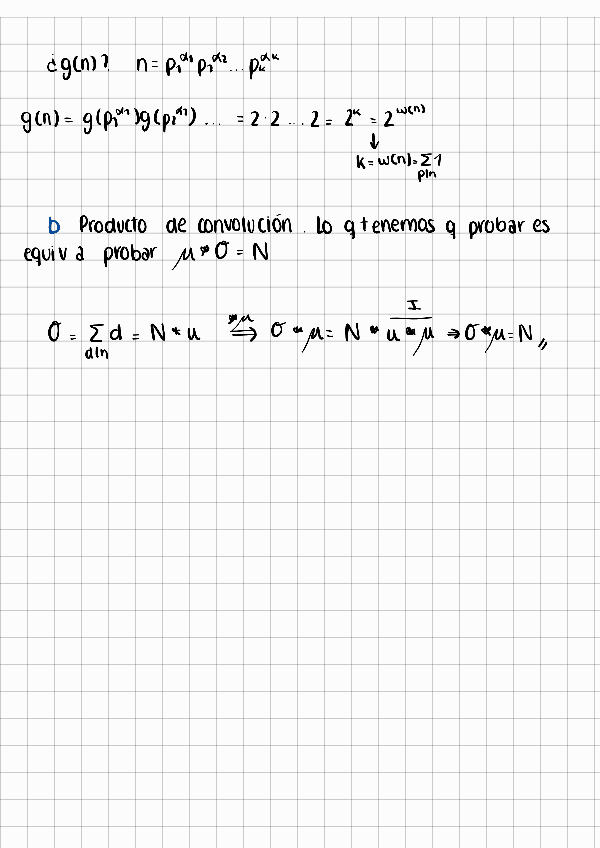 ¿g(n)? n = p₁^α₁ p₂^α₂ ... pₖ^αₖ
g(n) = g(p₁^α₁)g(p₂^α₂) ... = 2·2 ... 2 = 2^k = 2^ω(n)
↓
k = ω(n) = Σ 1
p|n
b Producto de convolución. Lo q tenemos q probar es
equiv a probar μ * σ = N
I
σ = Σ d = N * u ⟺ σ * μ = N * u * μ ⇒ σ * μ = N //
*μ
d|n